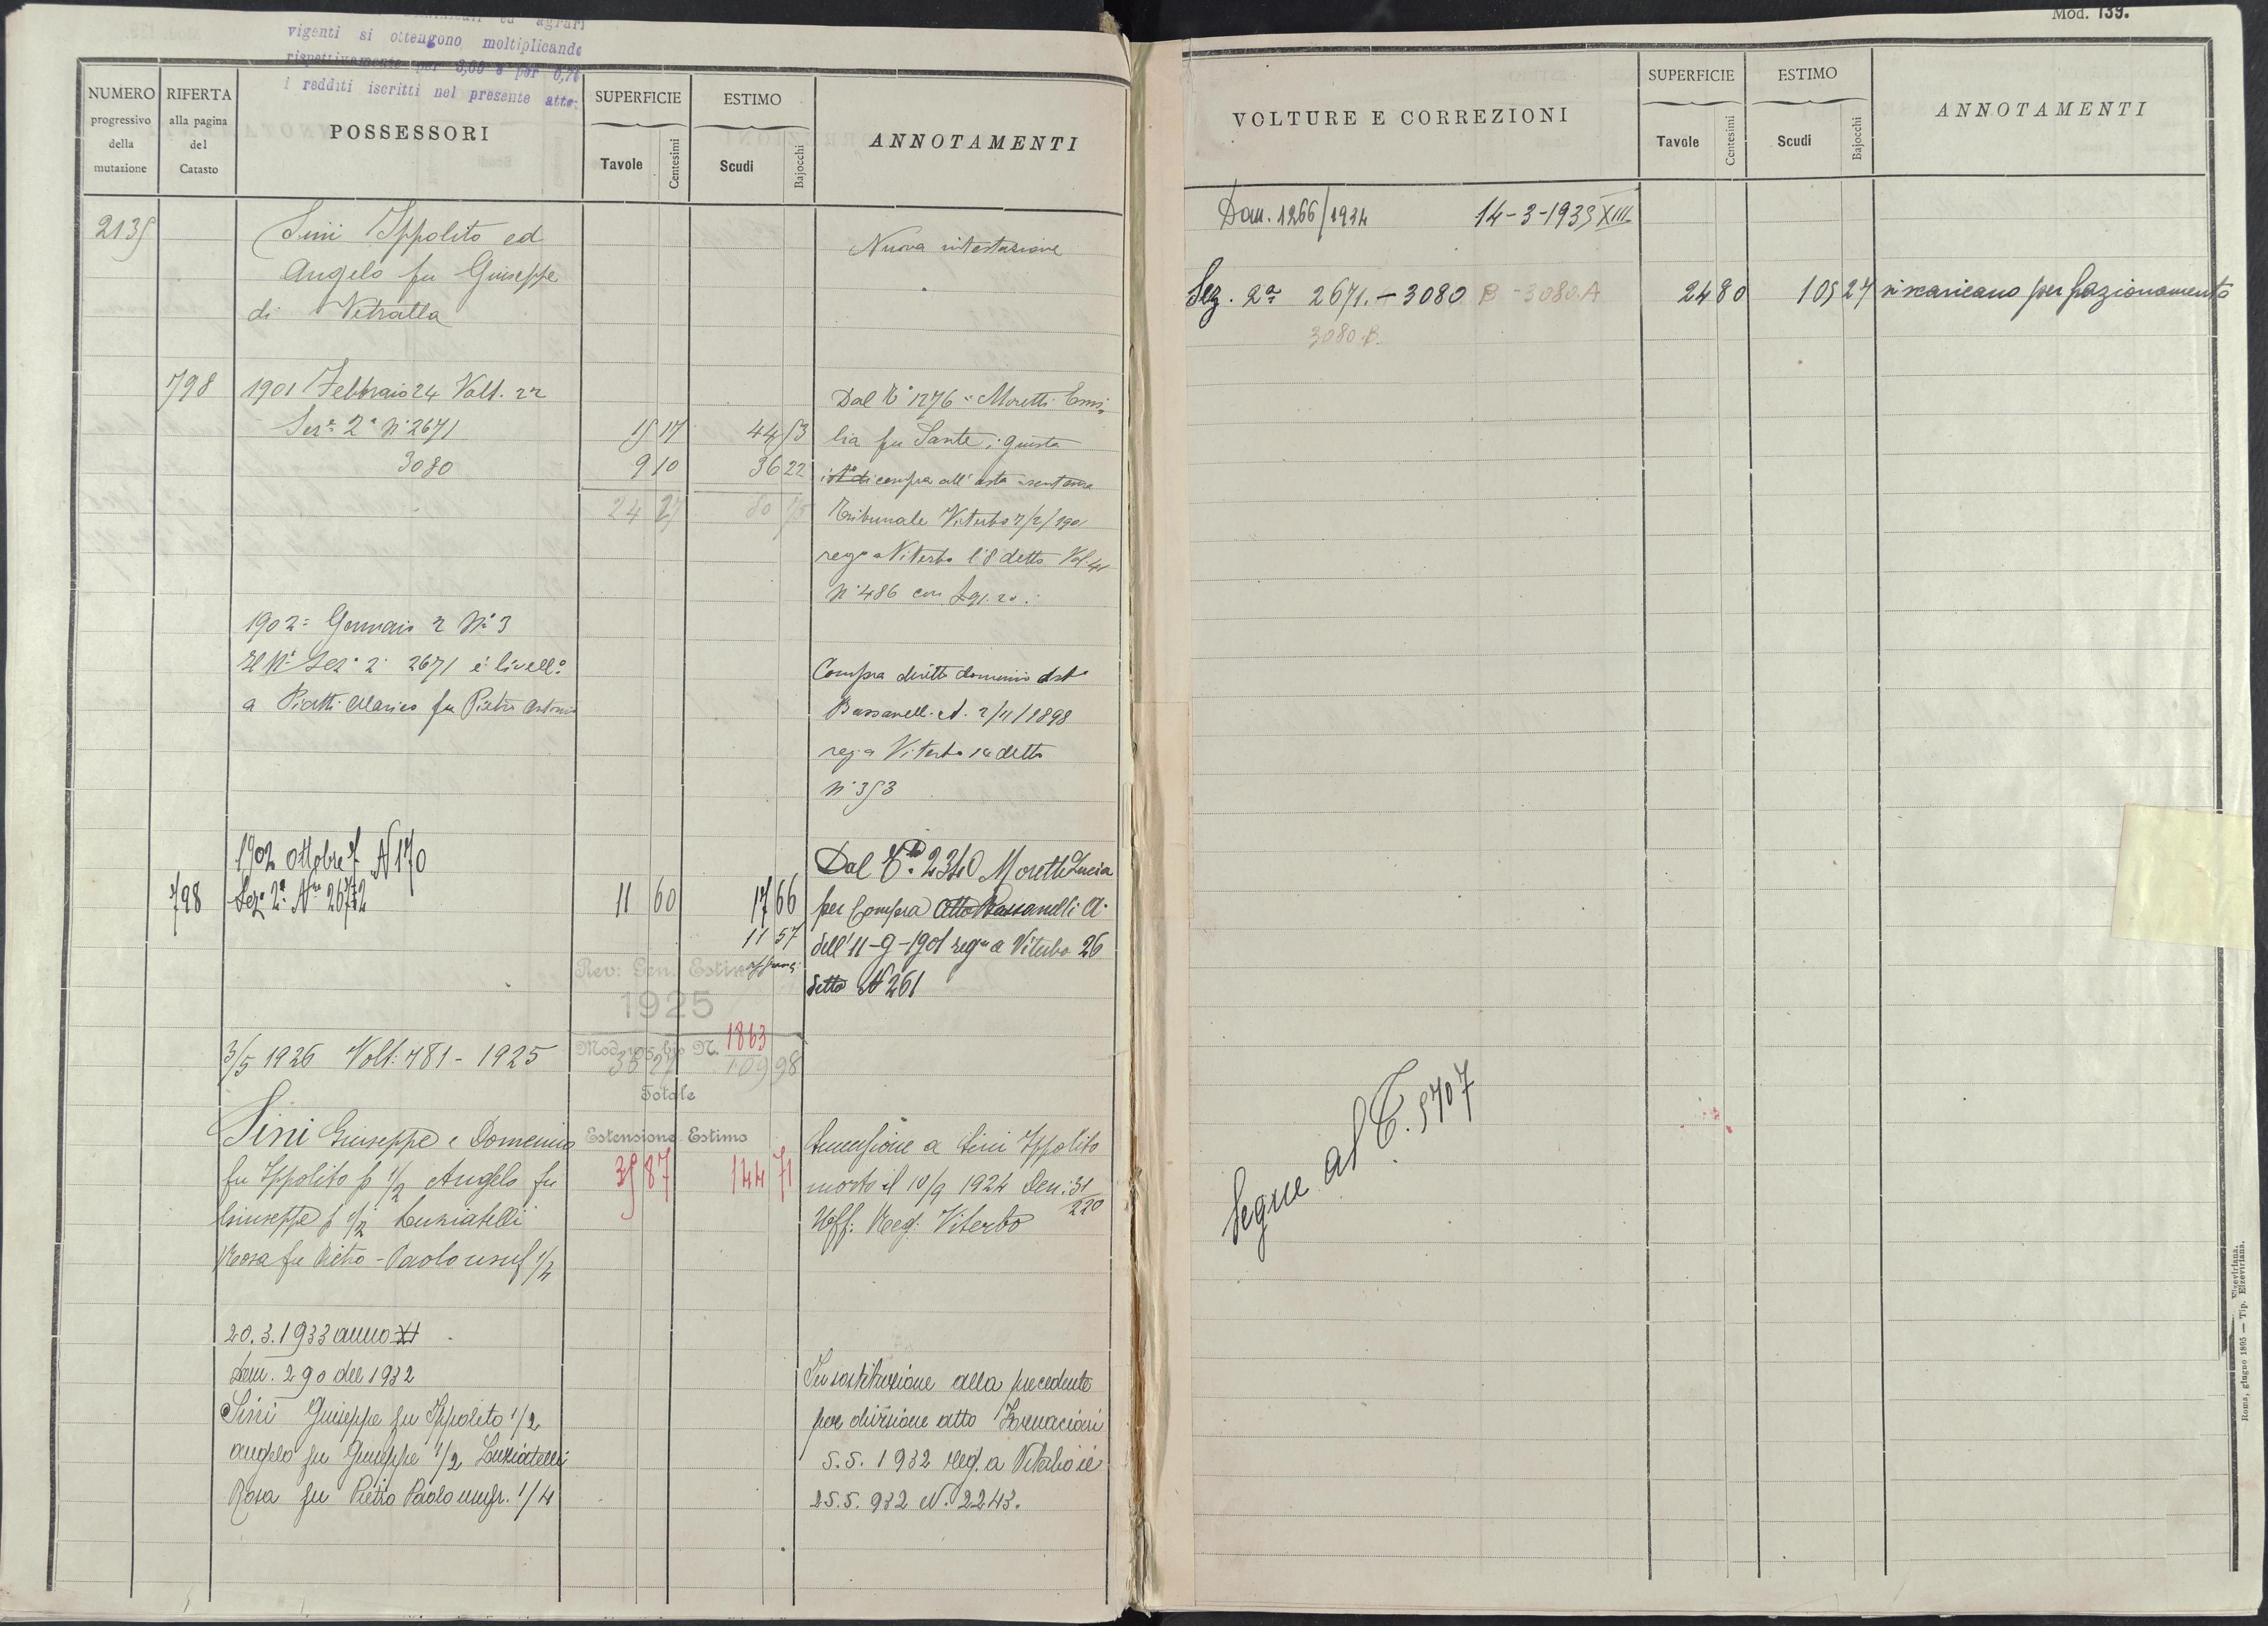 vigenti si ottengono moltiplicando
rispettivamente per
i redditi iscritti nel presente atto:
NUMERO progressivo della mutazione
RIFERTA alla pagina del Catasto
POSSESSORI
SUPERFICIE
Tavole Centesimi
ESTIMO
Scudi Bajocchi
ANNOTAMENTI
2135 Sini Ippolito ed
Angelo fu Giuseppe
di Vetralla
Nuova intestazione
798 1901 Febbraio 24 Volt. 22
Sez.e 2a N. 2671 15 17 44 53
3080 9 10 36 22
24 27 80 75
Dal C.o 1276 Moretti Emi
lia fu Sante, giusta
compra all'asta sentenza
Tribunale Viterbo 7/2/1901
reg. a Viterbo l'8 detto Vol. 41
N. 486 con
1902 = Gennaio 2 N. 3
Il N. Sez. 2a 2671 è livell.o
a Piatti Marico fu Pietro Antonio
Compra diretto dominio
Bassanelli A. 2/11/1898
reg. a Viterbo 14 detto
N. 353
1902 Ottobre 7 N 170
798 Seze 2a Nro 2672 11 60 17 66
11 57
affranc:
Dal C.to 2340 Moretti Lucia
per Compra Atto Bassanelli A.
dell'11-9-1901 regto a Viterbo 26
detto N 261
Rev: Gen. Estimi
1925
Mod. 105 bis N. 1863
35 27 109 98
Totale
Estensione Estimo
35 87 144 71
3/5 1926 Volt: 781 - 1925
Sini Giuseppe e Domenico
fu Ippolito p 1/2 Angelo fu
Giuseppe p 1/2 Luziatelli
Rosa fu Pietro-Paolo usuf 1/4
Successione a Sini Ippolito
morto il 10/9 1924 Den: 31
220
Uff: Reg: Viterbo
20.3.1933 anno XI
Dem. 290 del 1932
Sini Giuseppe fu Ippolito 1/2
Angelo fu Giuseppe 1/2 Luziatelli
Rosa fu Pietro Paolo usufr. 1/4
In sostituzione alla precedente
per divisione atto Fornaciari
5.5.1932 reg. a Viterbo il
25.5.932 N. 2243.
Mod. 139.
VOLTURE E CORREZIONI
SUPERFICIE
Tavole Centesimi
ESTIMO
Scudi Bajocchi
ANNOTAMENTI
Dom. 1266/1934 14-3-1935 XIII
Sez. 2a 2671. - 3080 B - 3080.A 24 80 105 27 si scaricano per frazionamento
3080.B.
Segue al C. 5707
Roma, giugno 1895 — Tip. Elzeviriana.